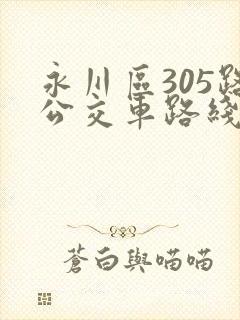 永川區305路
公交車路綫
蒼白與喵喵